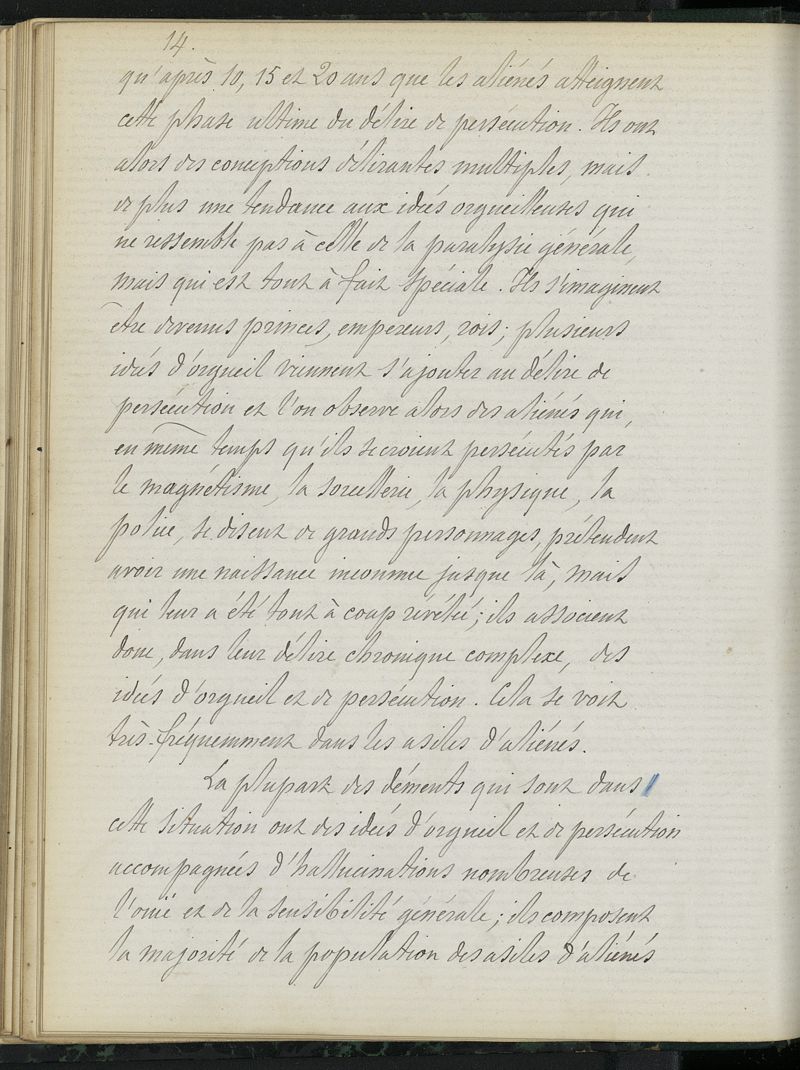 14.
qu'après 10, 15 et 20 ans que les aliénés atteignent
cette phase ultime du délire de persécution. Ils ont
alors des conceptions délirantes multiples, mais
de plus une tendance aux idées orgueilleuses qui
ne ressemble pas à celle de la paralysie générale,
mais qui est tout à fait spéciale. Ils s'imaginent
être devenus princes, empereurs, rois; plusieurs
idées d'orgueil viennent s'ajouter au délire de
persécution et l'on observe alors des aliénés qui,
en même temps qu'ils se croient persécutés par
le magnétisme, la sorcellerie, la physique, la
police, se disent de grands personnages, prétendent
avoir une naissance inconnue jusque là, mais
qui leur a été tout à coup révélé; ils associent
donc, dans leur délire chronique complexe, des
idées d'orgueil et de persécution. Cela se voit
très-fréquemment dans les asiles d'aliénés.
La plupart des déments qui sont dans
cette situation ont des idées d'orgueil et de persécution
accompagnées d'hallucinations nombreuses de
l'ouïe et de la sensibilité générale; ils composent
la majorité de la population des asiles d'aliénés